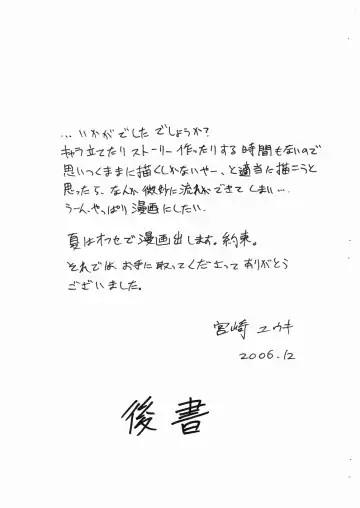 …いかがでしたでしょうか？
キャラ立てたりストーリー作ったりする時間もないので
思いつくままに描くしかないやー、と適当に描こうと
思ったら、なんか微妙に流れができてしまい…。
うーん、やっぱり漫画にしたい。
夏はオフセで漫画出します。約束。
それではお手に取ってくださってありがとう
ございました。
宮崎 ユウキ
2006.12
後書